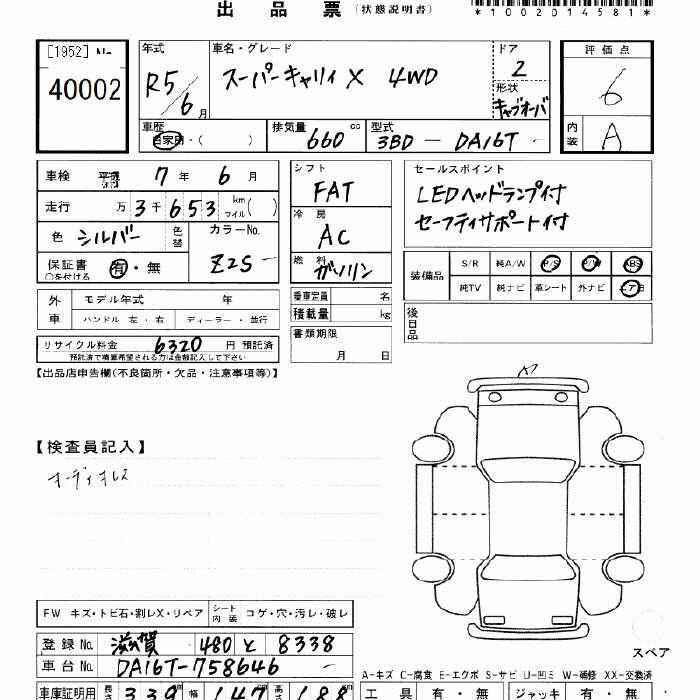 出品票 (状態説明書)
*1002014581*
[1952] No.
40002
年式 R5/6月
車名・グレード スーパーキャリィ X 4WD
ドア 2
形状 キャブオーバ
評価点 6
内装 A
車歴 自家用・( )
排気量 660 cc
型式 3BD - DA16T -
車検 平成 7年 6月
走行 万3千653 km マイル( )
色 シルバー 色替
カラーNo. Z2S -
保証書 有・無
○を付ける
シフト FAT
冷房 AC
燃料 ガソリン
セールスポイント
LEDヘッドランプ付
セーフティサポート付
装備品 S/R 純A/W P/S P/W ABS
純TV 純ナビ 革シート 外ナビ エアB
外車 モデル年式 年
ハンドル 左・右 ディーラー・並行
乗車定員 名
積載量 kg
後日品
リサイクル料金 6320 円 預託済
預託済で積算希望される方は金額記入して下さい
書類期限 月 日
【出品店申告欄(不良箇所・欠品・注意事項等)】
【検査員記入】
オーディオレス
FW キズ・トビ石・割レX・リペア シート内装 コゲ・穴・汚レ・破レ
登録No. 滋賀 480 と 8338
車台No. DA16T-758646
スペア
A-キズ C-腐食 E-エクボ S-サビ U-凹ミ W-補修 XX-交換済
車庫証明用 長さ 339 cm 幅 147 cm 高さ 188 cm
工具 有・無 ジャッキ 有・無